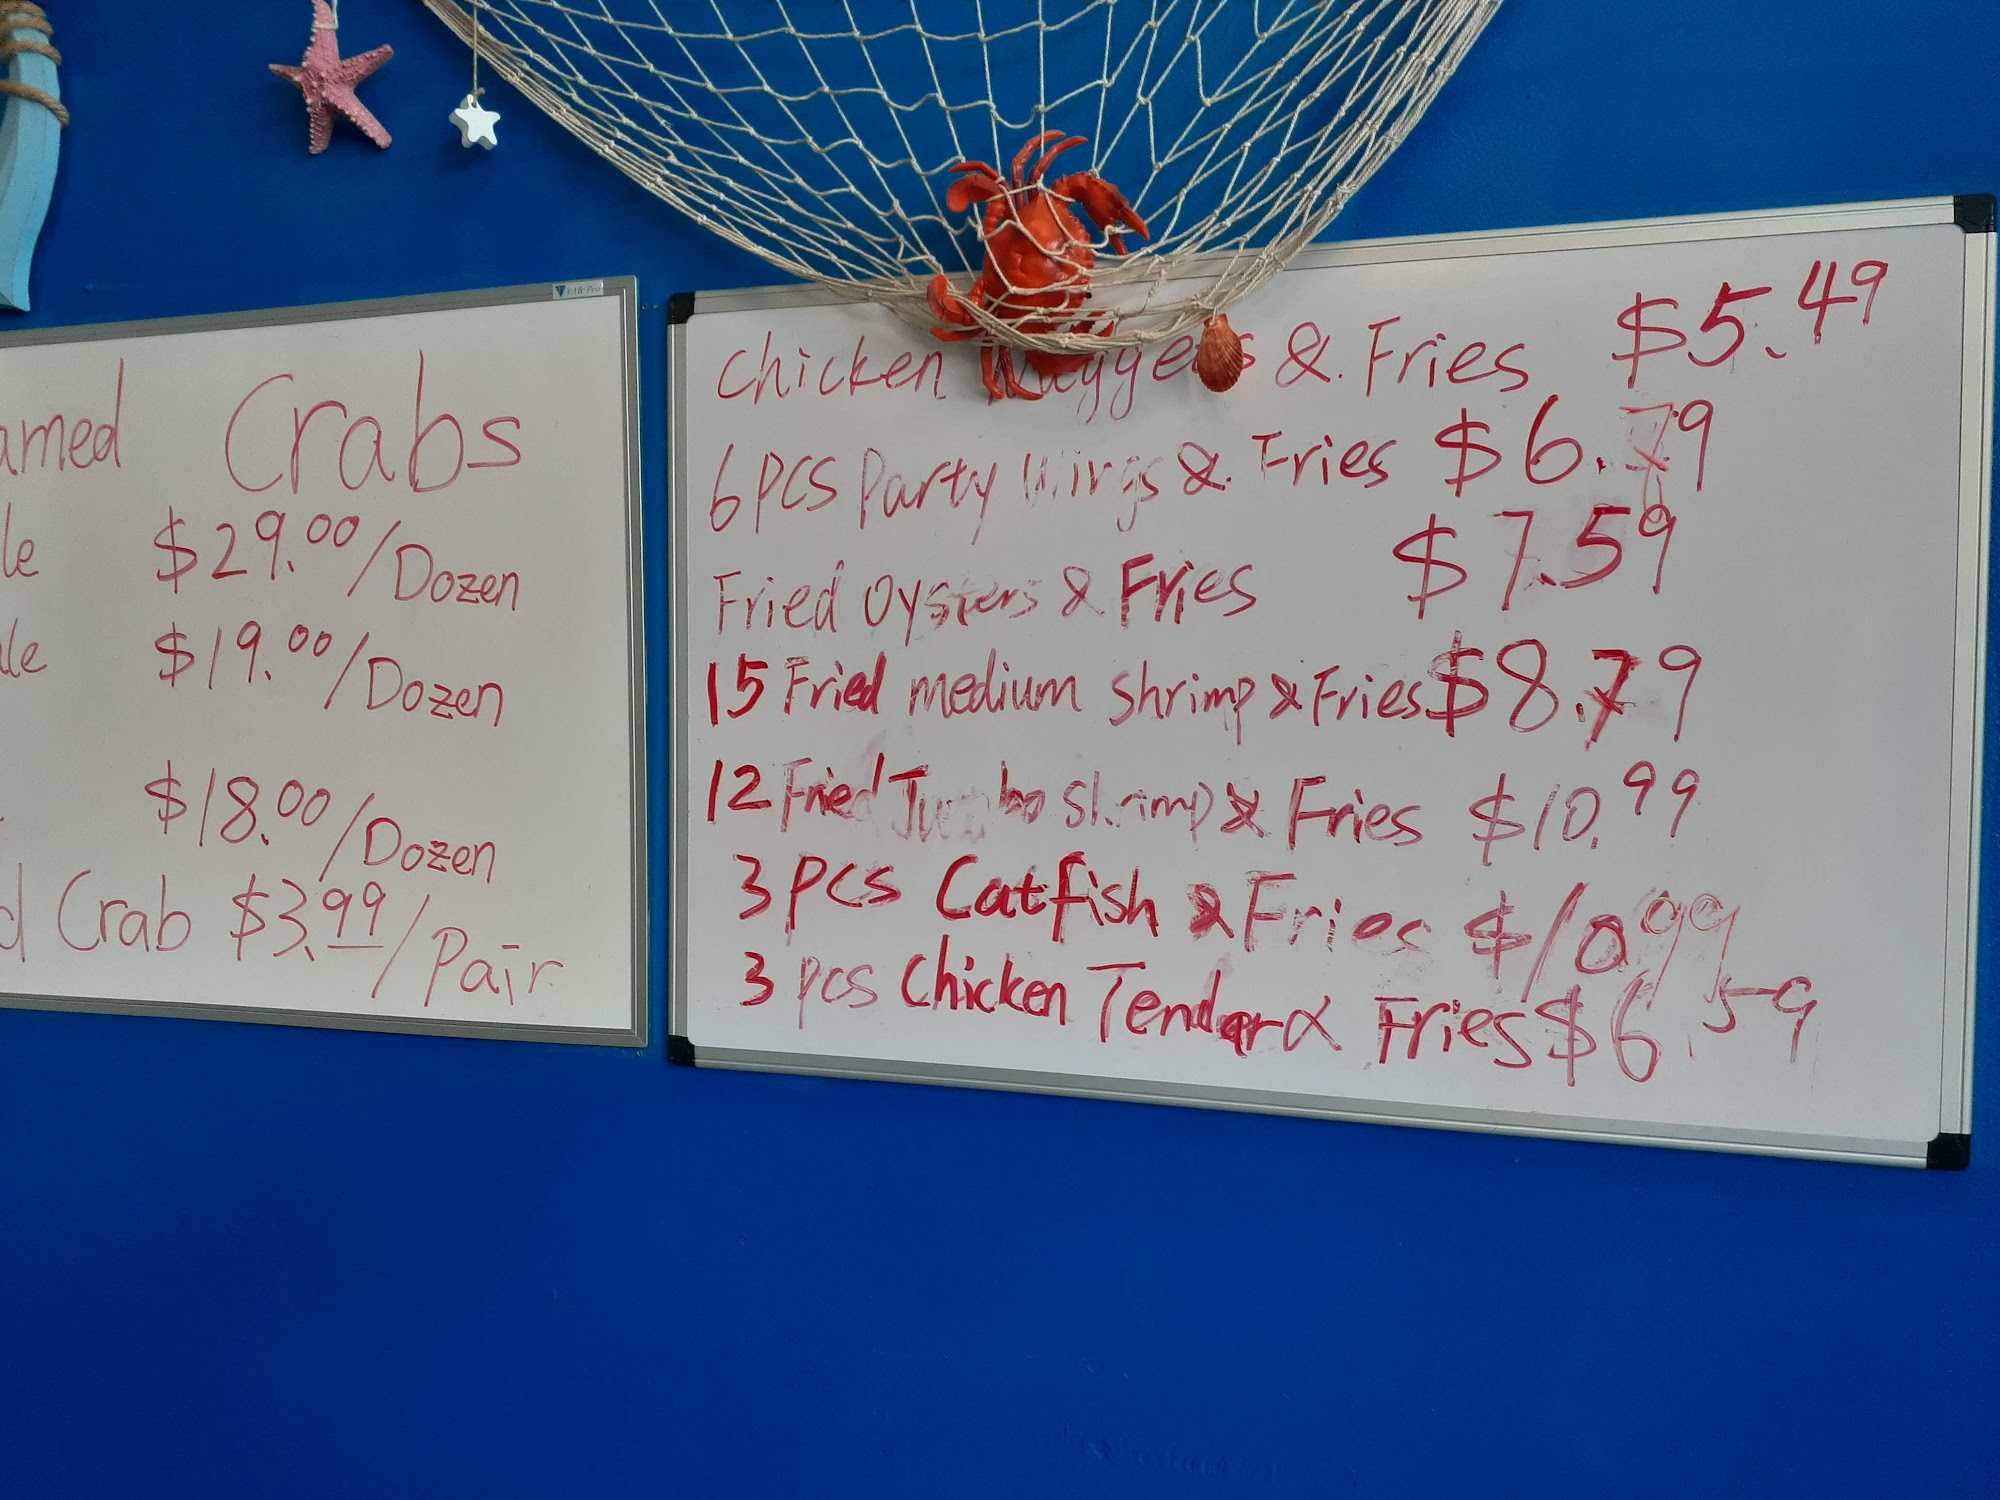 Crabs
$29.00/Dozen
$19.00/Dozen
$18.00/Dozen
Crab $3.99/Pair
Chicken Nuggets & Fries $5.49
6 PCS Party Wings & Fries $6.79
Fried Oysters & Fries $7.59
15 Fried medium Shrimp & Fries $8.79
12 Fried Jumbo Shrimp & Fries $10.99
3 PCS Catfish & Fries $10.99
3 pcs Chicken Tender & Fries $6.59